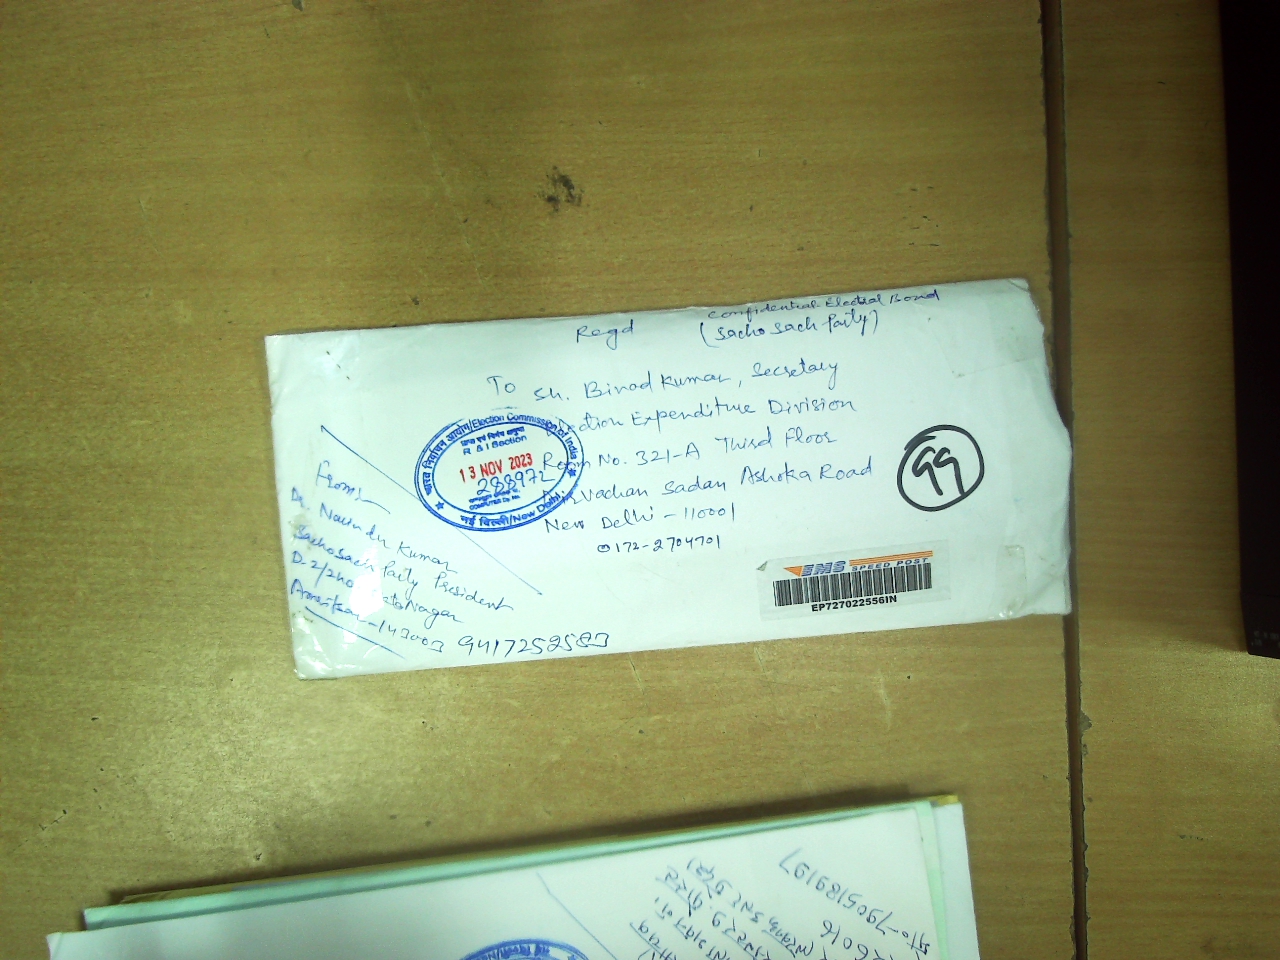 Confidential Electral Bond
Regd
(Sacho Sach Party)
To
Sh. Binod Kumar, Secretary
Expenditure Division
Room No. 321-A Third Floor
Sadan Ashoka Road
New Delhi - 110001
0172-2704701
भारत निर्वाचन आयोग/Election Commission of India
R & I Section
13 NOV 2023
288972
COMPUTER
नई दिल्ली/New Delhi
99
From:-
Dr. Kumar
Sacho Sach Party President
D-2/240 Nagar
Amritsar-143003 9417252583
EMS SPEED POST
EP727022556IN
मो0-7905189197